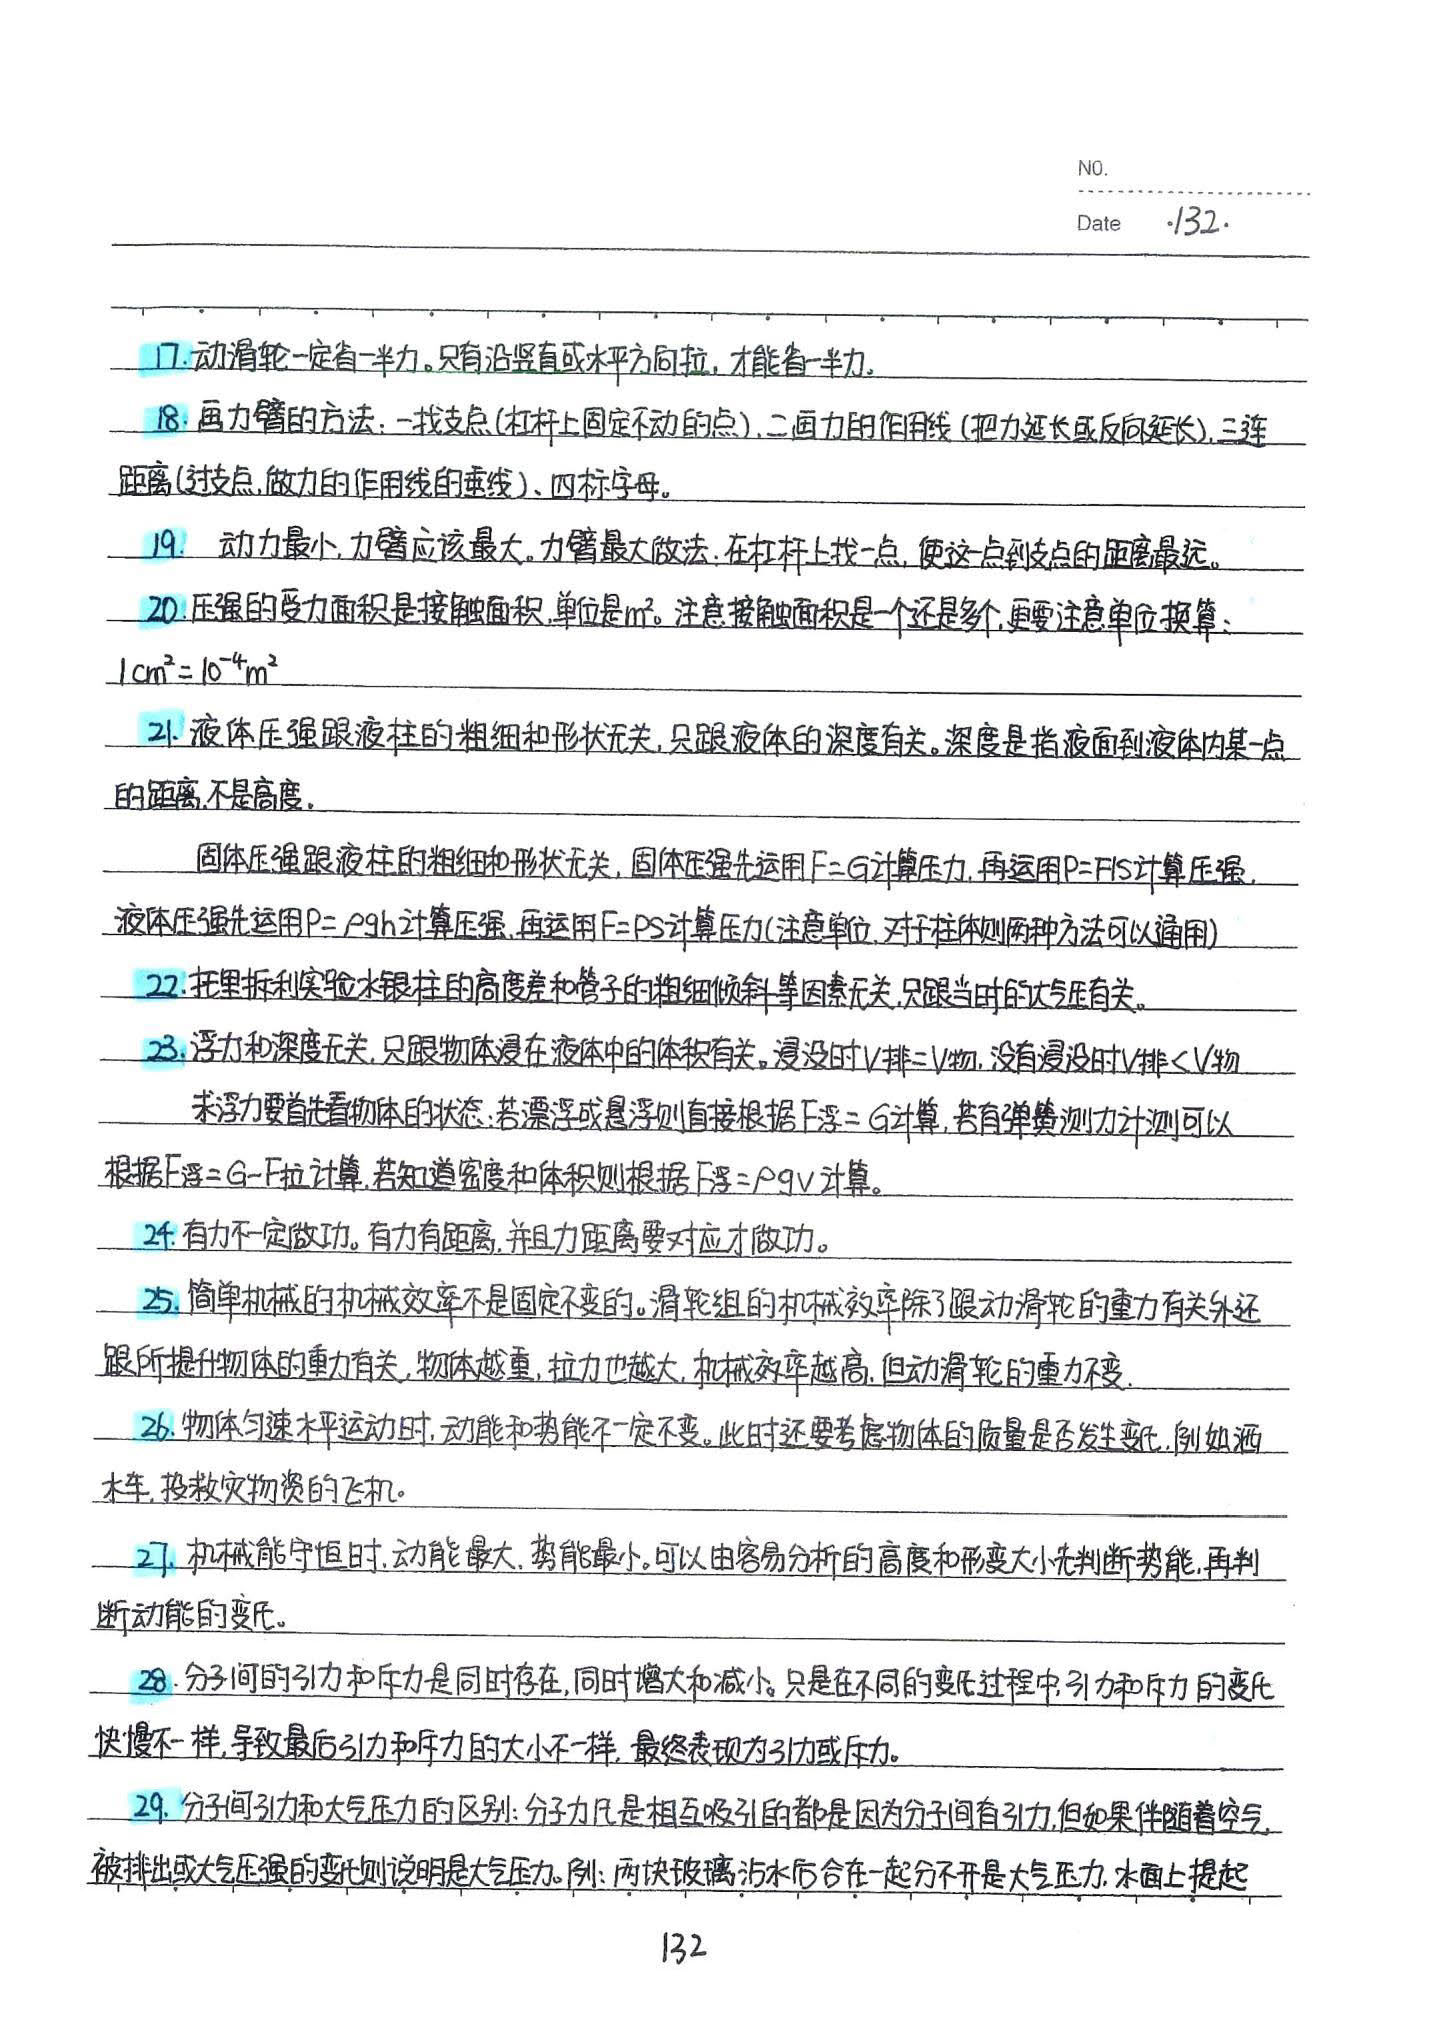 NO.
Date ·132·
17.动滑轮一定省一半力。只有沿竖直或水平方向拉,才能省一半力。
18.画力臂的方法:一找支点(杠杆上固定不动的点),二画力的作用线(把力延长或反向延长),三连
距离(过支点,做力的作用线的垂线)、四标字母。
19. 动力最小,力臂应该最大。力臂最大做法:在杠杆上找一点,使这一点到支点的距离最远。
20.压强的受力面积是接触面积,单位是m²。注意接触面积是一个还是多个,更要注意单位换算:
1cm²=10⁻⁴m²
21.液体压强跟液柱的粗细和形状无关,只跟液体的深度有关。深度是指液面到液体内某一点
的距离,不是高度。
固体压强跟液柱的粗细和形状无关,固体压强先运用F=G计算压力,再运用P=F/S计算压强,
液体压强先运用P=ρgh计算压强,再运用F=PS计算压力(注意单位,对于柱体则两种方法可以通用)
22.托里拆利实验水银柱的高度差和管子的粗细倾斜等因素无关,只跟当时的大气压有关。
23.浮力和深度无关,只跟物体浸在液体中的体积有关。浸没时V排=V物,没有浸没时V排<V物
求浮力要首先看物体的状态:若漂浮或悬浮则直接根据F浮=G计算,若有弹簧测力计测可以
根据F浮=G-F拉计算,若知道密度和体积则根据F浮=ρgv计算。
24.有力不一定做功。有力有距离,并且力距离要对应才做功。
25.简单机械的机械效率不是固定不变的。滑轮组的机械效率除了跟动滑轮的重力有关外还
跟所提升物体的重力有关,物体越重,拉力也越大,机械效率越高,但动滑轮的重力不变.
26.物体匀速水平运动时,动能和势能不一定不变。此时还要考虑物体的质量是否发生变化,例如洒
水车,投救灾物资的飞机。
27.机械能守恒时,动能最大,势能最小。可以由容易分析的高度和形变大小先判断势能,再判
断动能的变化。
28.分子间的引力和斥力是同时存在,同时增大和减小。只是在不同的变化过程中,引力和斥力的变化
快慢不一样,导致最后引力和斥力的大小不一样,最终表现为引力或斥力。
29.分子间引力和大气压力的区别:分子力凡是相互吸引的都是因为分子间有引力,但如果伴随着空气
被排出或大气压强的变化则说明是大气压力。例:两块玻璃沾水后合在一起分不开是大气压力,水面上提起
132